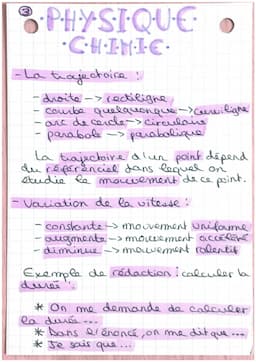 ③
PHYSIQUE
CHIMIE
- La trajectoire :
- droite -> rectiligne
- courbe quelquonque -> curviligne
- arc de cercle -> circulaire
- parabole -> parabolique
La trajectoire d'un point dépend
du référenciel dans lequel on
étudie le mouvement de ce point.
- Variation de la vitesse :
- constante -> mouvement uniforme
- augmente -> mouvement accéléré
- diminue -> mouvement ralentit
Exemple de rédaction : calculer la
durée :
* On me demande de calculer
la durée ...
* Dans l'énoncé, on me dit que ...
* Je sais que ...